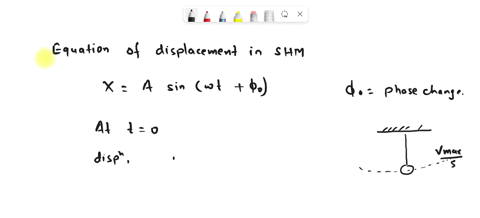 Equation of displacement in SHM
X = A sin (ωt + ϕ₀)
ϕ₀ = phase change.
At t = 0
dispⁿ,
Vmax
5